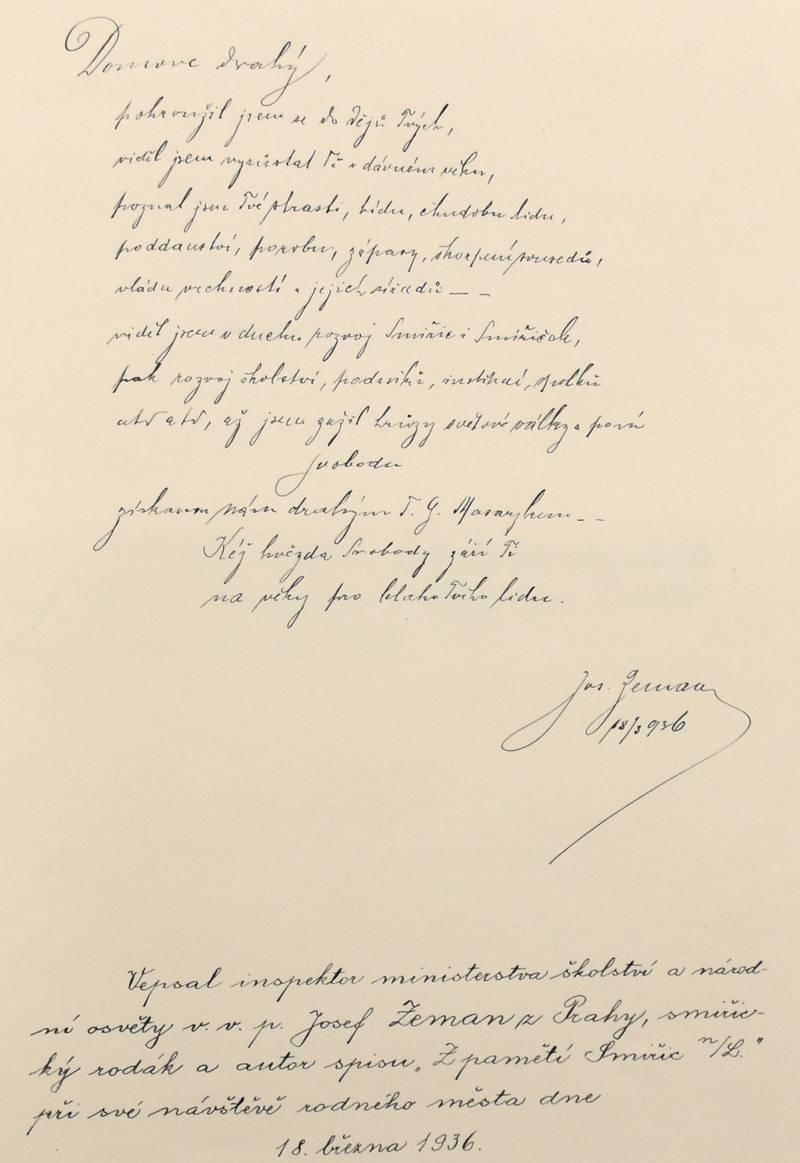 Domove drahý,
pohroužil jsem se do dějů Tvých,
viděl jsem vyrůstat Tě v dávném věku,
poznal jsem Tvé strasti, bídu, chudobu lidu,
poddanství, porobu, zápasy, sousedů,
vládu vrchností a jejich úřadů — —
viděl jsem v duchu rozvoj Smiřic i Smiřiček,
pak rozvoj školství, podniků, institucí, spolků
atd atd, až jsem zažil hrůzy světové války a
svobodu
získanou nám drahým T. G. Masarykem — —
Kéž hvězda Svobody září Ti
na věky pro blaho Tvého lidu.
Jos. Zeman
18/3 936
Vepsal inspektor ministerstva školství a národ-
ní osvěty v. v. p. Josef Zeman z Prahy, smiřic-
ký rodák a autor spisu „Z pamětí Smiřic n/L."
při své návštěvě rodného města dne
18. března 1936.